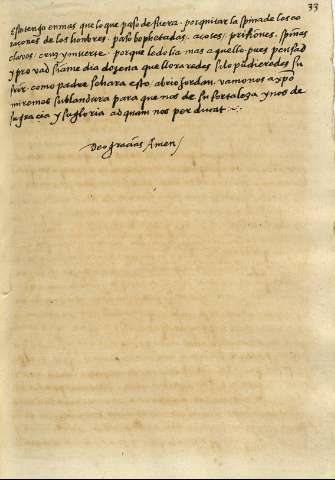 33
esto tengo en mas que lo que paso de fuera. por quitar la spina de los co
raçones de los hombres. paso bophetadas. açotes. prisiones. spinas
clavos. cruz y muerte. porque le dolia mas aquello. pues pensad
y pro vad siqame dia dozena que lloraredes si lo pudieredes su
frir. como padre sohara esto. abrio Jordan. vamonos a xpo
miremos su blandura para que nos de su fortaleza y nos de
su gracia y su gloria ad quam nos perducat
Deo gracias Amen